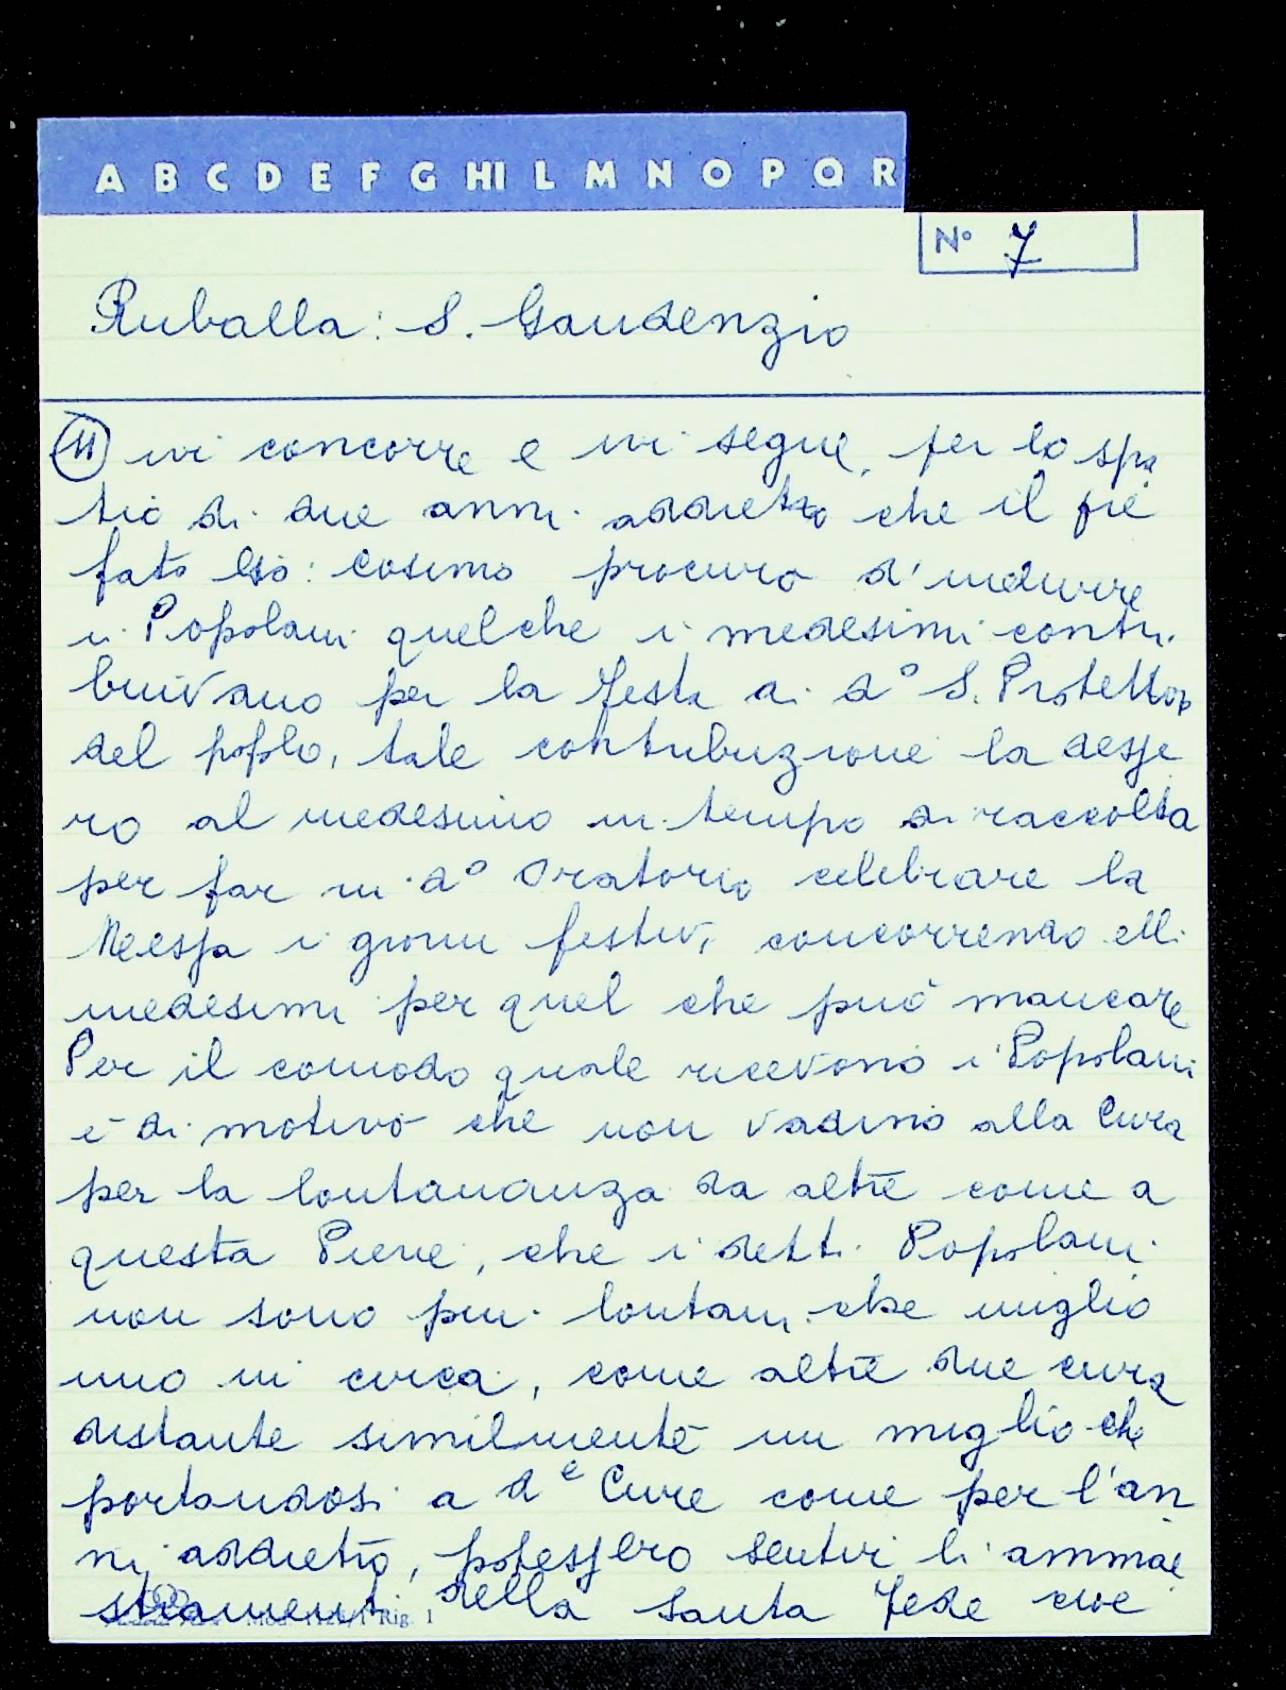 A B C D E F G HI L M N O P Q R
N° 7
Ruballa: S. Gaudenzio
11 ivi concorre e ivi segue, per lo spa
tio di due anni addietro che il pre
fato cosimo procurò d'indurre
i Popolani quelche i medesimi contri
buivano per la festa di d° S. Protettor
del popolo, tale contribuzione la desse
ro al medesimo in tempo di raccolta
per far in d° Oratorio celebrare la
Messa i giorni festivi concorrendo elli
medesimi per quel che può mancare
Per il comodo quale ricevono i Popolani
è di motivo che non vadino alla Cura
per la lontananza da altre come a
questa Pieve, che i detti Popolani
non sono più lontani che miglio
uno in circa, come altre due cura
distante similmente un miglio che
portandosi a d e Cure come per l'an
ni addietro, potessero sentir li ammae
stramenti della Santa Fede cioè
Rig. 1